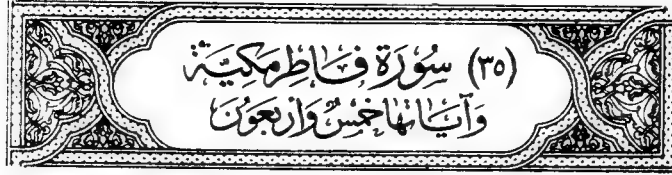 (٣٥) سُورَة فَاطِر مَكيَّة
وَآيَانهَا خَمسٌ وَأربَعُون